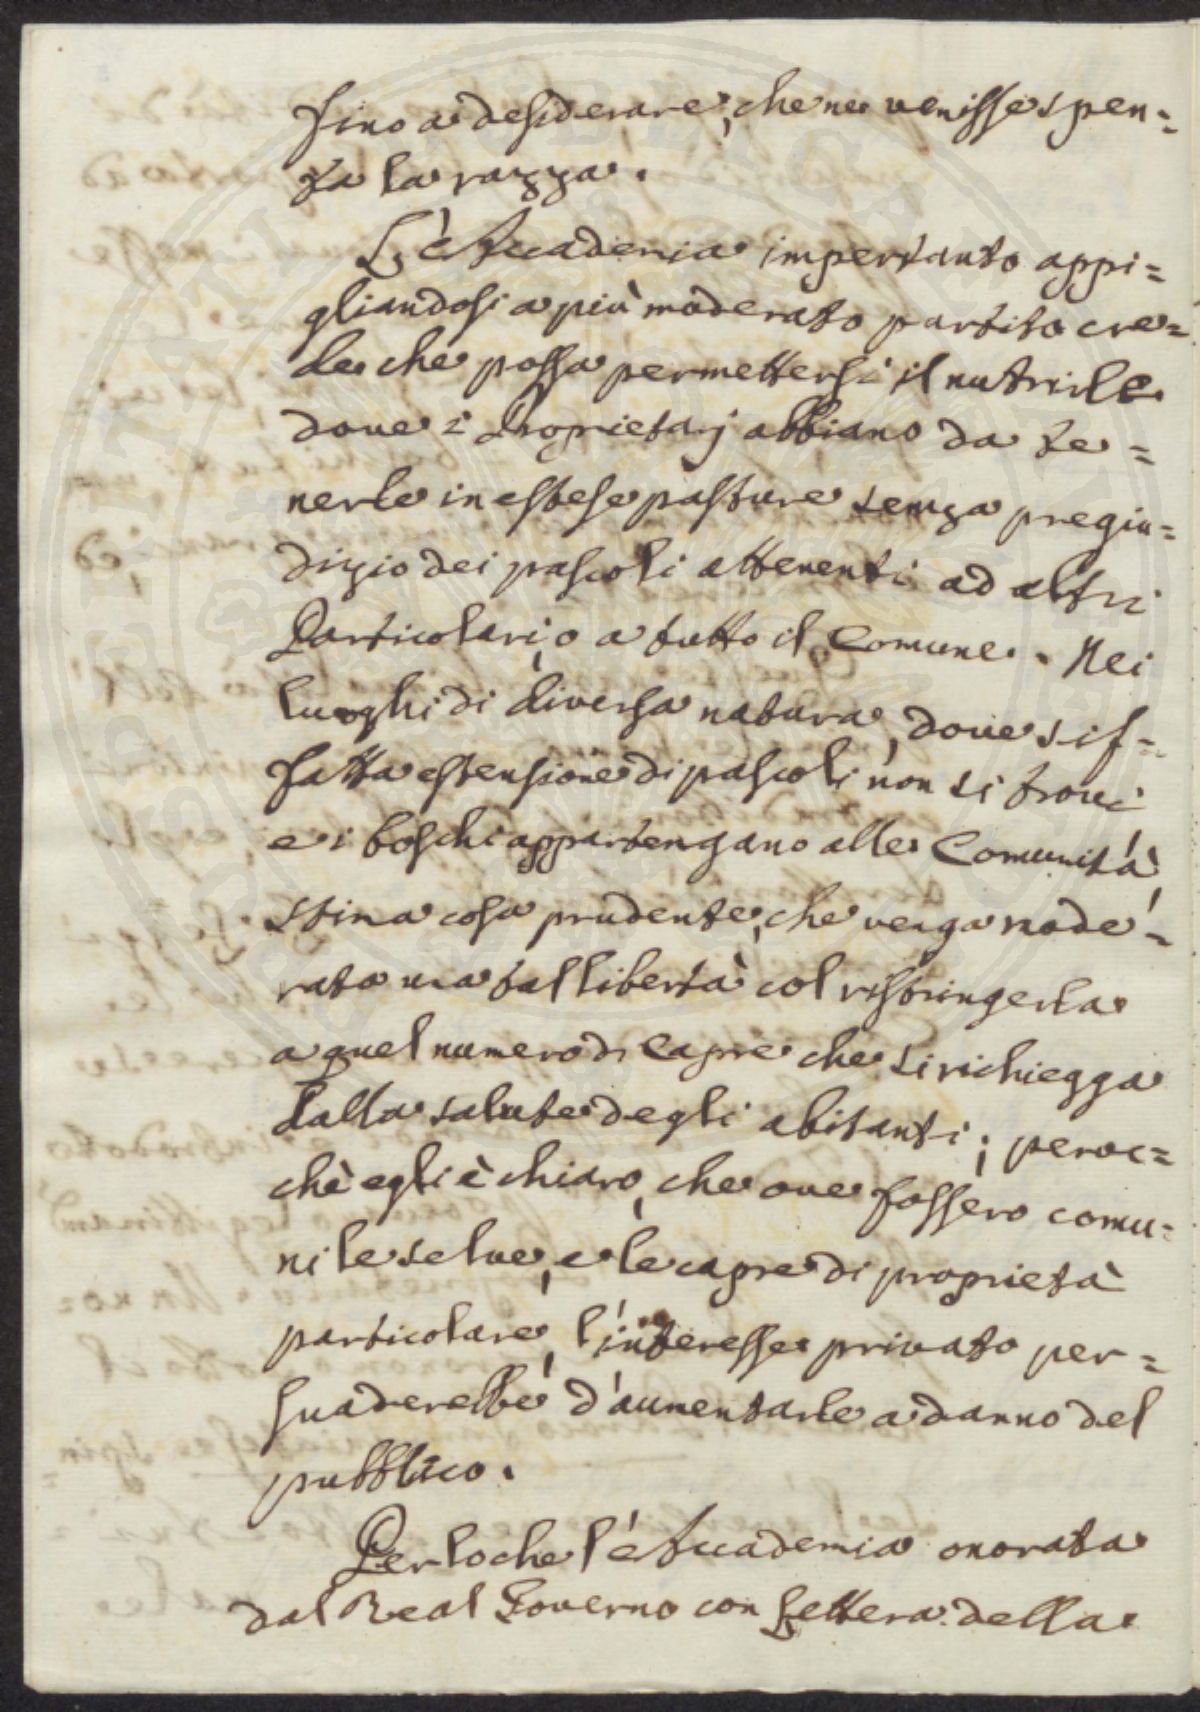 fino a desiderare, che ne venisse spen=
ta la razza.
L'Accademia impertanto appi=
gliandosi a più moderato partito cre=
de che possa permettersi il nutrirle
dove i Proprietarj abbiano da te=
nerle in estese pasture senza pregiu=
dizio dei pascoli attenenti ad altri
Particolari, o a tutto il Comune. Nei
luoghi di diversa natura, dove sif=
fatta estensione di pascoli non si trovi
e i boschi appartengano alle Comunità,
stima cosa prudente, che venga mode=
rata una tal libertà col ristringerla
a quel numero di Capre che si richiegga
dalla salute degli abitanti; peroc=
chè egli è chiaro, che ove fossero comu=
ni le selve, e le capre di proprietà
particolare, l'interesse privato per=
suaderebbe d'aumentarle a danno del
pubblico.
Perloche l'Accademia onorata
dal Real Governo con Lettera della